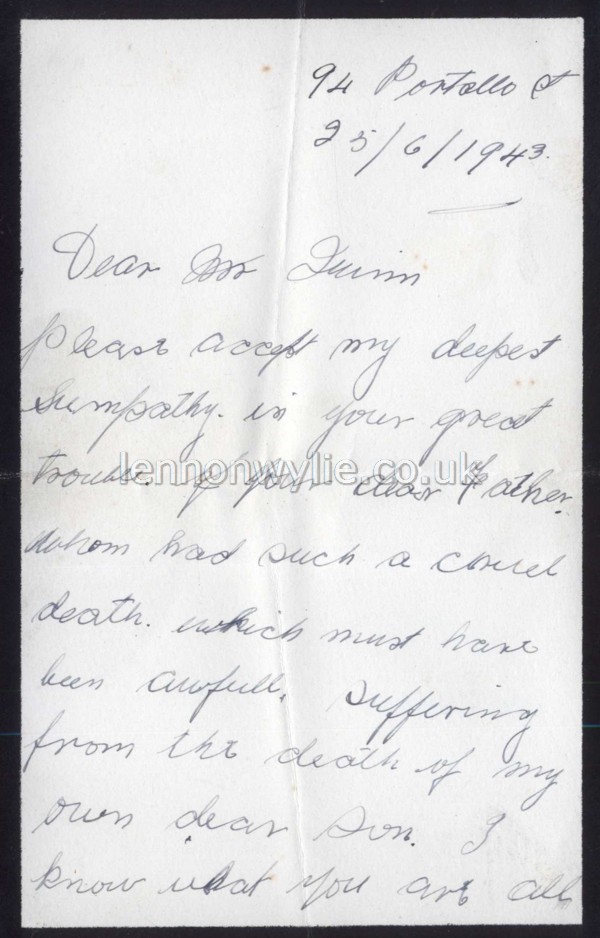 94 Portallo St
25/6/1943.
Dear Mr Quinn
please accept my deepest
Sympathy. in your great
trouble. of your dear Father.
lennonwylie.co.uk
whom had such a cruel
death. which must have
been awfull. Suffering
from the death of my
own dear Son. I
know what you are all